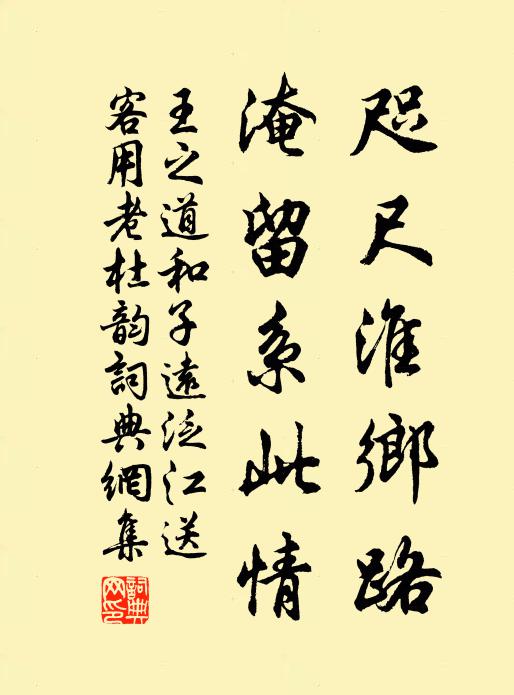 咫尺淮鄉路
淹留系此情
王之道和子遠泛江送
客用老杜韵詞典網集
詞典網印